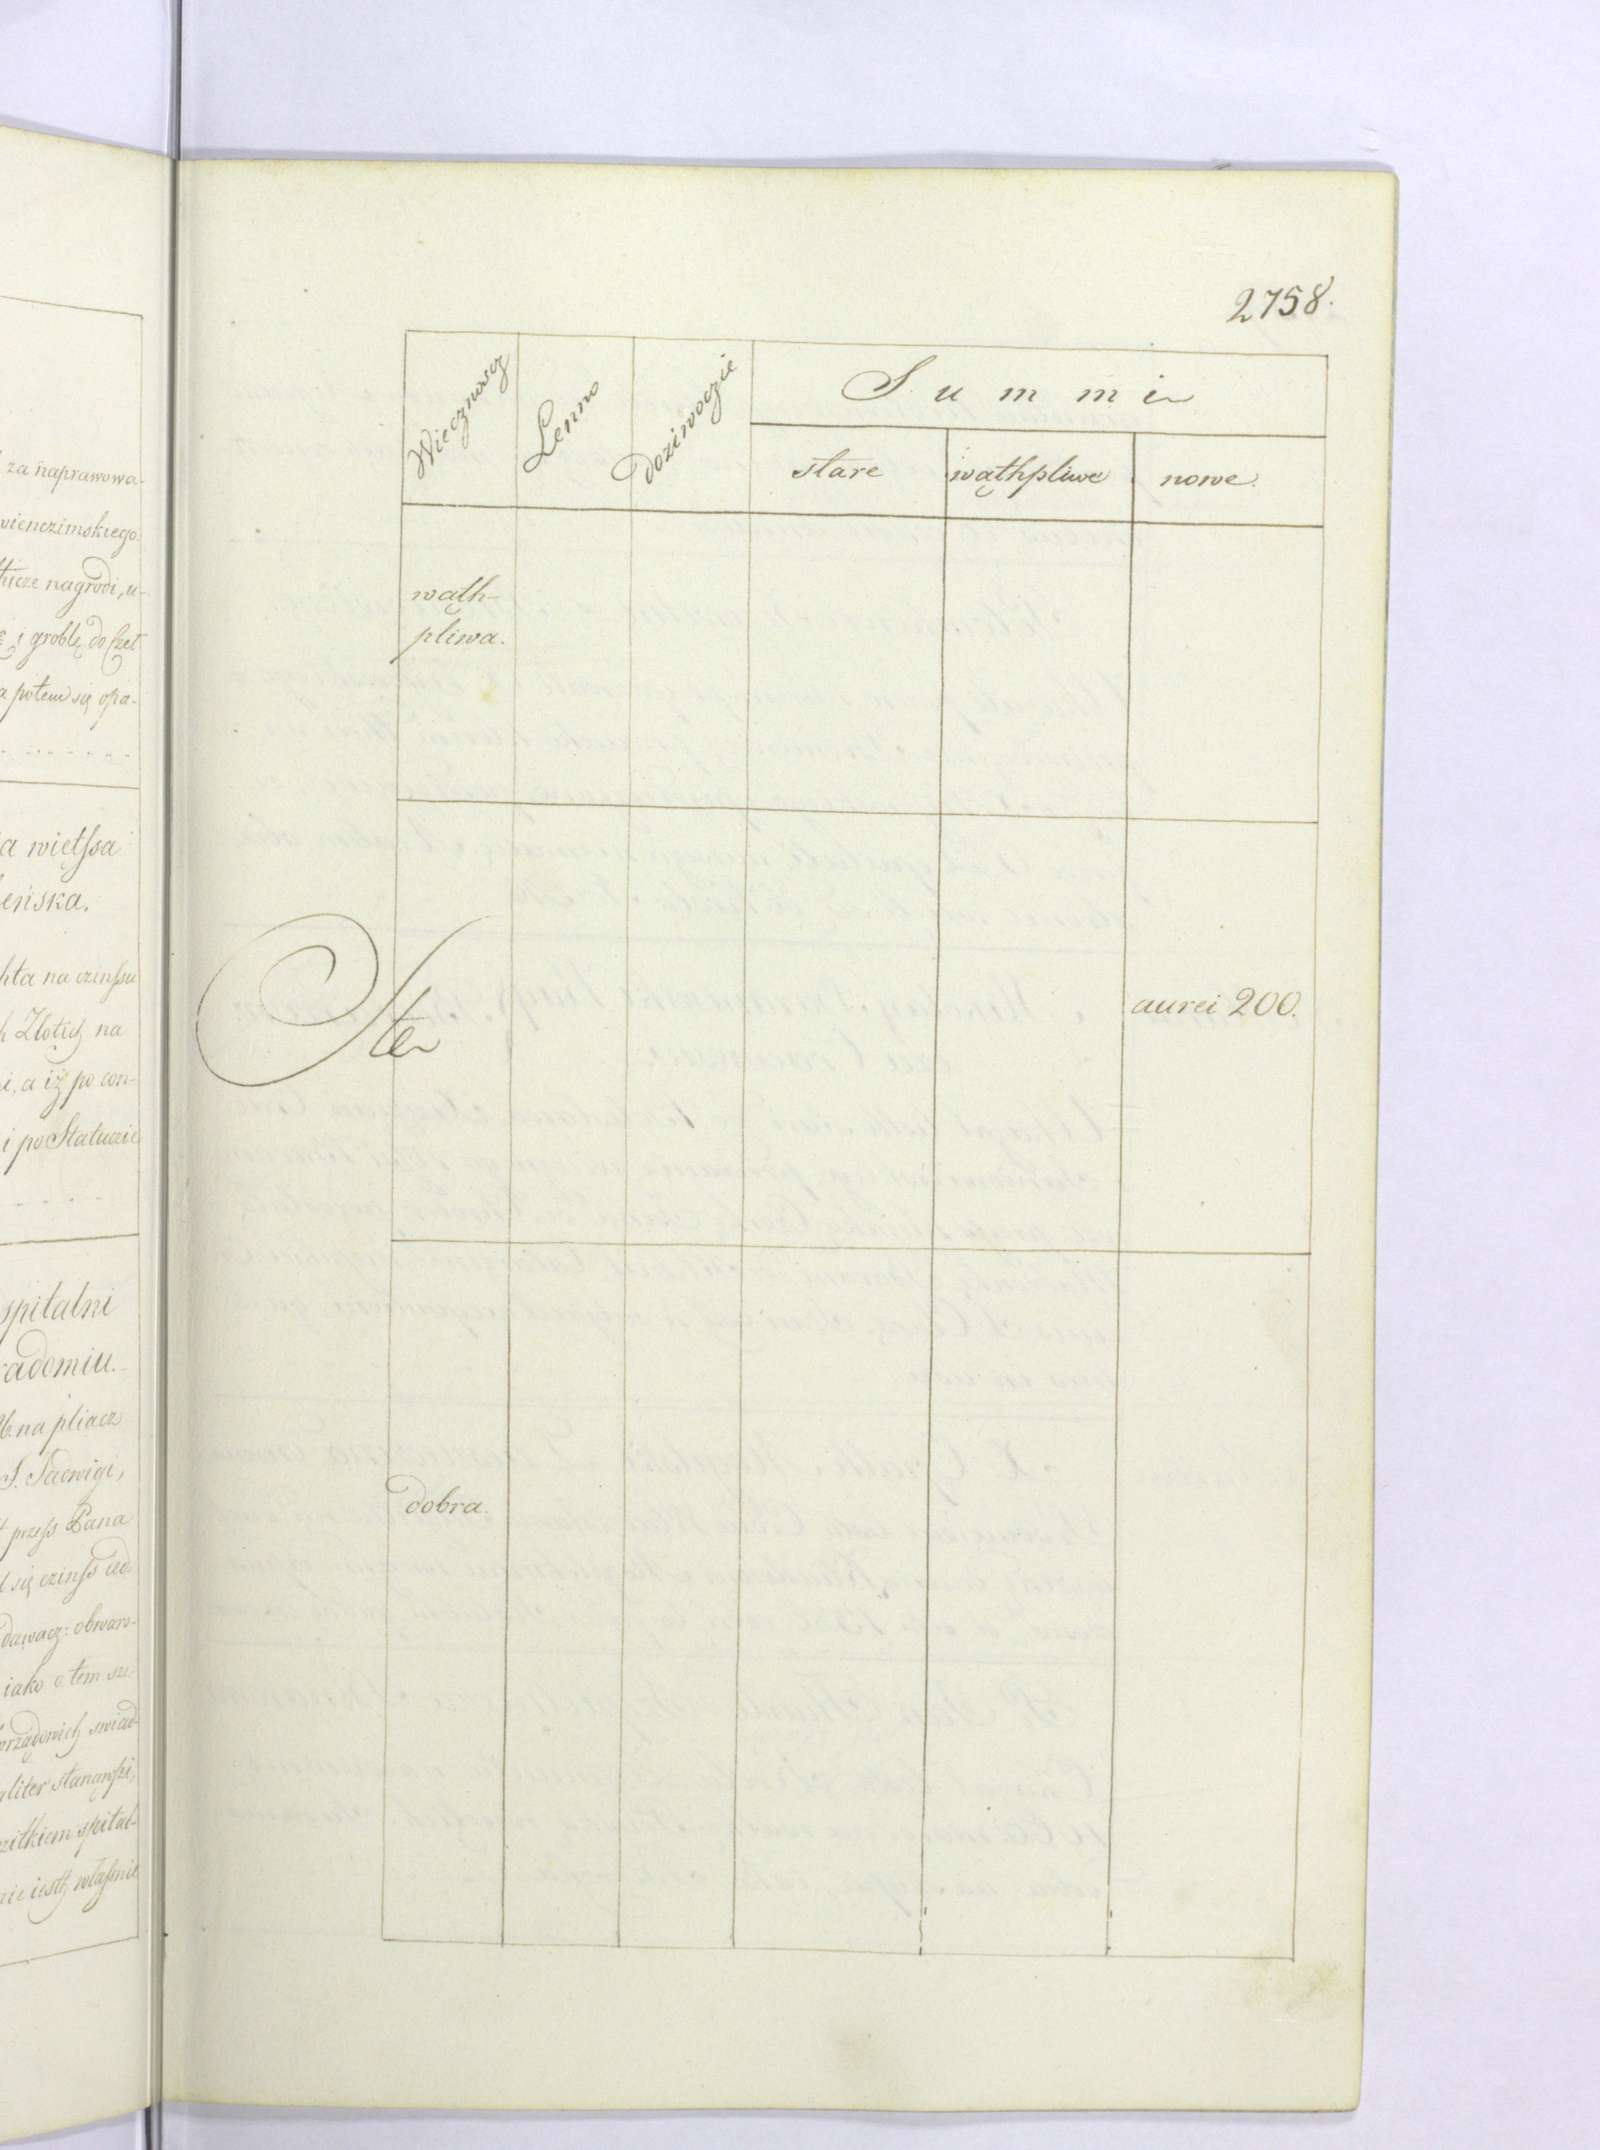 za naprawowa-
wienczimskiego.
thicze nagrodi, u-
i groblę do Czet
a potem się opa-
a wietssa
eńska.
hta na czinssu
h Zlotich na
i, a iż po con-
i po Statucie
spitalni
radomiu.
b. na pliacz
S. Jadwigi,
przess Pana
się czinss ud.
dawacz: obwaro-
iako o tem sze
prządowich swiad-
aliter stanąwszi,
zitkiem spital-
nie iesth własnie
2758.
Wiecznoscz
Lenno
Doziwoczie
Summi
stare
wąthpliwe
nowe.
wąth-
pliwa.
Ste
aurei 200.
dobra.